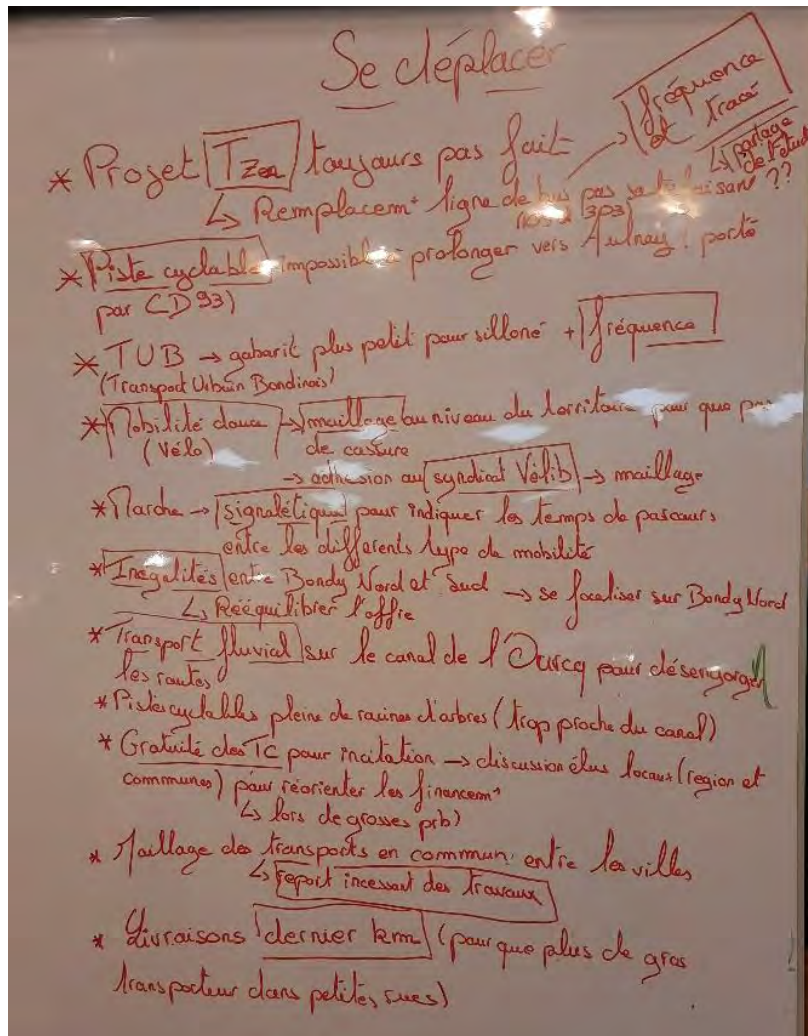 Se déplacer
fréquence
et tracé
↳ partage
de l'étude
* Projet Tzen toujours pas fait
↳ Remplacemt ligne de bus pas satisfaisant ??
303)
* Piste cyclable impossible à prolonger vers Aulnay ! porté
par CD93)
* TUB → gabarit plus petit pour silloné + fréquence
(Transport Urbain Bondinois)
* Mobilité douce → maillage au niveau du territoire pour que pas
(Vélo) de cassure
→ adhésion au syndicat Vélib → maillage
* Marche → signalétique pour indiquer les temps de parcours
entre les différents type de mobilité
* Inégalités entre Bondy Nord et Sud → se focaliser sur Bondy Nord
↳ Rééquilibrer l'offre
* Transport fluvial sur le canal de l'Ourcq pour désengorger
les routes
* Pistes cyclables pleine de racines d'arbres (trop proche du canal)
* Gratuité des TC pour incitation → discussion élus locaux (region et
communes) pour réorienter les financemt
↳ lors de grosses prb)
* Maillage des transports en commun entre les villes
↳ report incessant des travaux
* Livraisons dernier km (pour que plus de gros
transporteur dans petites rues)